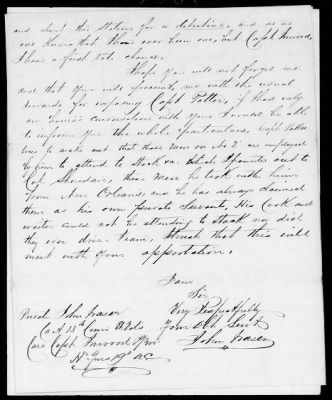 and about this Station for a detective, and as no
one knows that I have ever been one, but Capt Inwood,
I have a first rate chance.
I hope you will not forget me
and that you will present me with the usual
rewards, for exposing Capt Potter, if I had only
an hour's conversation with you I would be able
to inform you the whole particulars, Capt Potter
tries to make out that those men on No 2 are employed
by him to attend to Stock &c. Which I pointed out to
Col Sheridan, these Men he took with him
from New Orleans, and he has always claimed
them as his own private Servants, His Cook and
waiter could not be attending to Stock nor did
they ever drive team, I trust that this will
meet with your approbation.
I am
Sir,
Very Respectfully
Your Obt Servt
John Fraser
Private John Fraser
Co A 13th Conn Vols
Care Capt Inwood
Hd Qurs 19th AC